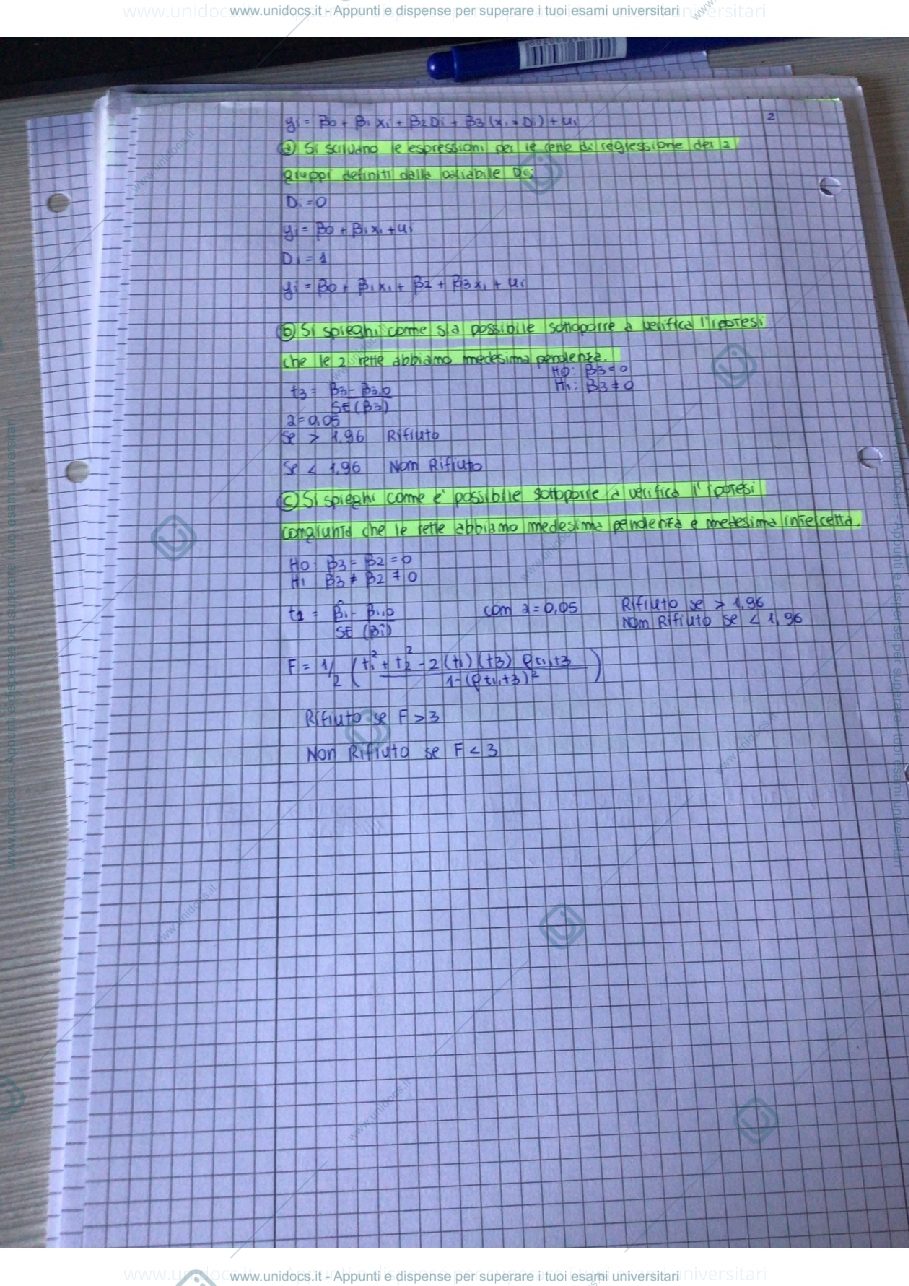 www.unidocs.it - Appunti e dispense per superare i tuoi esami universitari
2
yi = β0 + β1 xi + β2Di + β3 (xi * Di) + ui
a) Si scrivano le espressioni per le rette di regressione dei 2
gruppi definiti dalla variabile Di
Di = 0
yi = β0 + β1xi + ui
Di = 1
yi = β0 + β1xi + β2 + β3xi + ui
b) Si spieghi come sia possibile sottoporre a verifica l'ipotesi
che le 2 rette abbiamo medesima pendenza.
H0: β3 = 0
H1: β3 ≠ 0
t3 = β3 - β3,0
SE (β3)
a = 0,05
Se > 1,96 Rifiuto
Se < 1,96 Non Rifiuto
c) Si spieghi come e' possibile sottoporre a verifica l'ipotesi
congiunta che le rette abbiamo medesima pendenza e medesima intercetta.
H0 β3 = β2 = 0
H1 β3 ≠ β2 ≠ 0
t1 = β̂1 - β1,0 com a = 0,05 Rifiuto se > 1,96
SE (β̂1) Non Rifiuto se < 1,96
F = 1/2 ( t1² + t2² - 2 (t1) (t3) ρt1,t3 )
1 - (ρt1,t3)²
Rifiuto se F > 3
Non Rifiuto se F < 3
www.unidocs.it - Appunti e dispense per superare i tuoi esami universitari